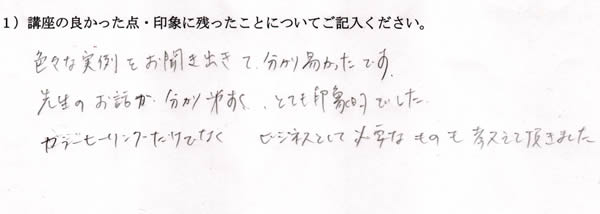 1）講座の良かった点・印象に残ったことについてご記入ください。
色々な実例をお聞き出きて、分かり易かったです。
先生のお話が分かり易く、とても印象的でした。
カラーセーリングだけでなく ビジネスとして必要なものも考えて頂きました